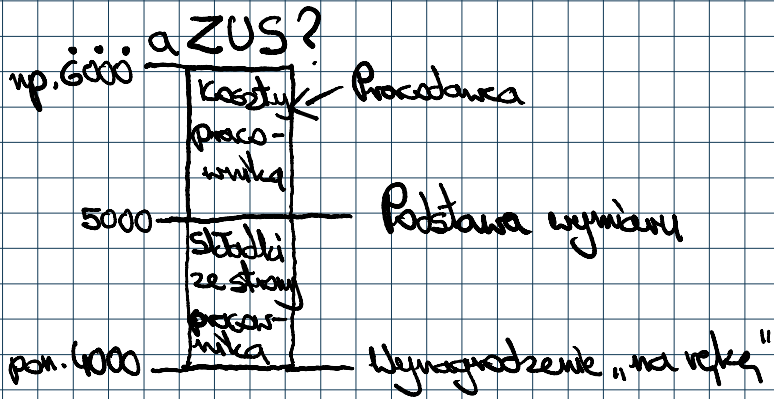 a ZUS?
np. 6000
Koszty
praco-
wnika
Pracodawca
5000
Podstawa wymiaru
składki
ze strony
pracow-
nika
pon. 4000
Wynagrodzenie „na rękę”